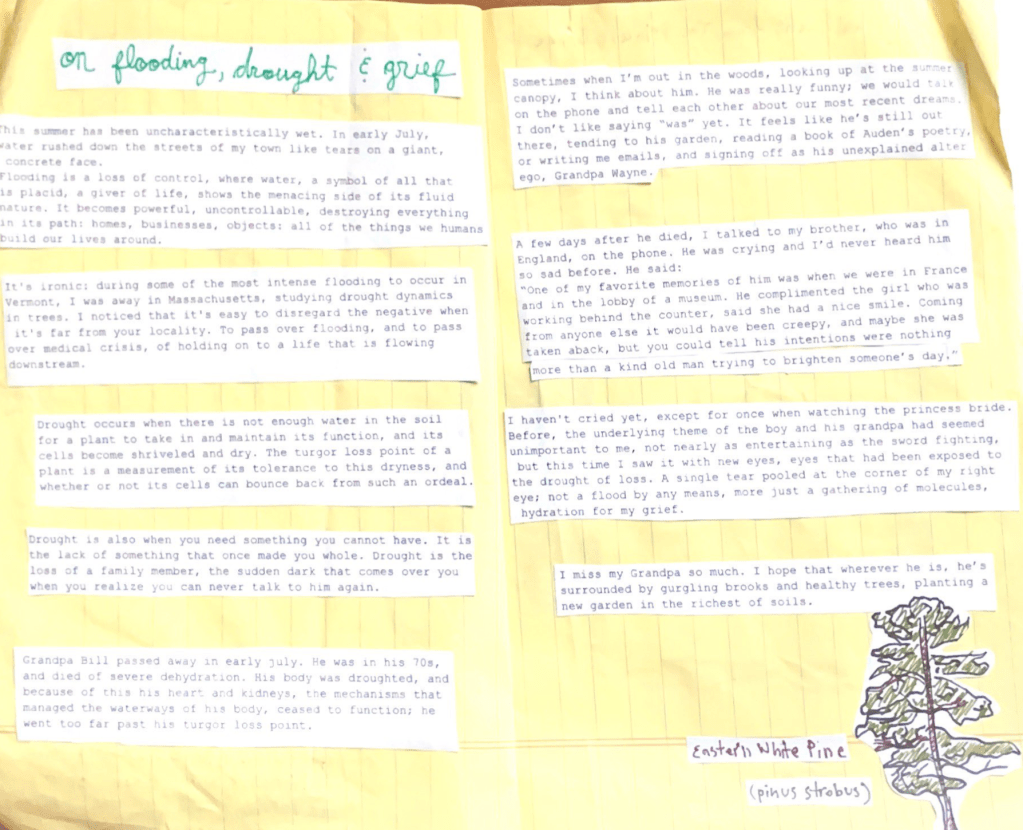 on flooding, drought & grief
This summer has been uncharacteristically wet. In early July,
water rushed down the streets of my town like tears on a giant,
concrete face.
Flooding is a loss of control, where water, a symbol of all that
is placid, a giver of life, shows the menacing side of its fluid
nature. It becomes powerful, uncontrollable, destroying everything
in its path: homes, businesses, objects: all of the things we humans
build our lives around.
It's ironic: during some of the most intense flooding to occur in
Vermont, I was away in Massachusetts, studying drought dynamics
in trees. I noticed that it's easy to disregard the negative when
it's far from your locality. To pass over flooding, and to pass
over medical crisis, of holding on to a life that is flowing
downstream.
Drought occurs when there is not enough water in the soil
for a plant to take in and maintain its function, and its
cells become shriveled and dry. The turgor loss point of a
plant is a measurement of its tolerance to this dryness, and
whether or not its cells can bounce back from such an ordeal.
Drought is also when you need something you cannot have. It is
the lack of something that once made you whole. Drought is the
loss of a family member, the sudden dark that comes over you
when you realize you can never talk to him again.
Grandpa Bill passed away in early july. He was in his 70s,
and died of severe dehydration. His body was droughted, and
because of this his heart and kidneys, the mechanisms that
managed the waterways of his body, ceased to function; he
went too far past his turgor loss point.
Sometimes when I'm out in the woods, looking up at the summer
canopy, I think about him. He was really funny; we would talk
on the phone and tell each other about our most recent dreams.
I don't like saying "was" yet. It feels like he's still out
there, tending to his garden, reading a book of Auden's poetry,
or writing me emails, and signing off as his unexplained alter
ego, Grandpa Wayne.
A few days after he died, I talked to my brother, who was in
England, on the phone. He was crying and I'd never heard him
so sad before. He said:
"One of my favorite memories of him was when we were in France
and in the lobby of a museum. He complimented the girl who was
working behind the counter, said she had a nice smile. Coming
from anyone else it would have been creepy, and maybe she was
taken aback, but you could tell his intentions were nothing
more than a kind old man trying to brighten someone's day."
I haven't cried yet, except for once when watching the princess bride.
Before, the underlying theme of the boy and his grandpa had seemed
unimportant to me, not nearly as entertaining as the sword fighting,
but this time I saw it with new eyes, eyes that had been exposed to
the drought of loss. A single tear pooled at the corner of my right
eye; not a flood by any means, more just a gathering of molecules,
hydration for my grief.
I miss my Grandpa so much. I hope that wherever he is, he's
surrounded by gurgling brooks and healthy trees, planting a
new garden in the richest of soils.
Eastern White Pine
(pinus strobus)